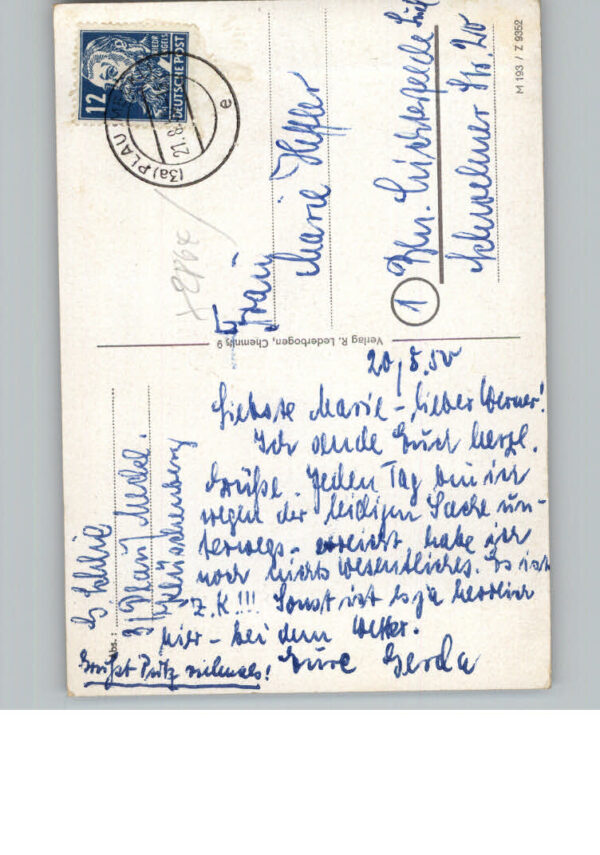 20/8.50
Liebste Marie – lieber Werner!
Ich sende Euch herzl.
Grüße. Jeden Tag bin ich
wegen der leidigen Sache un-
terwegs – erreicht habe ich
noch nichts wesentliches. Es ist
z.K!!! Sonst ist es ja herrlich
hier – bei dem Wetter.
Eure Gerda
Grüßt Putz vielmals!
Abs.:
3) Plau Meckl.
Klüschenberg
Frau
Marie
1 Bln.
Schwelmer Str. 20
Verlag R. Lederbogen, Chemnitz 9
M 193 / Z 9352
12
DEUTSCHE POST
(3a) PLAU
21.8.
e